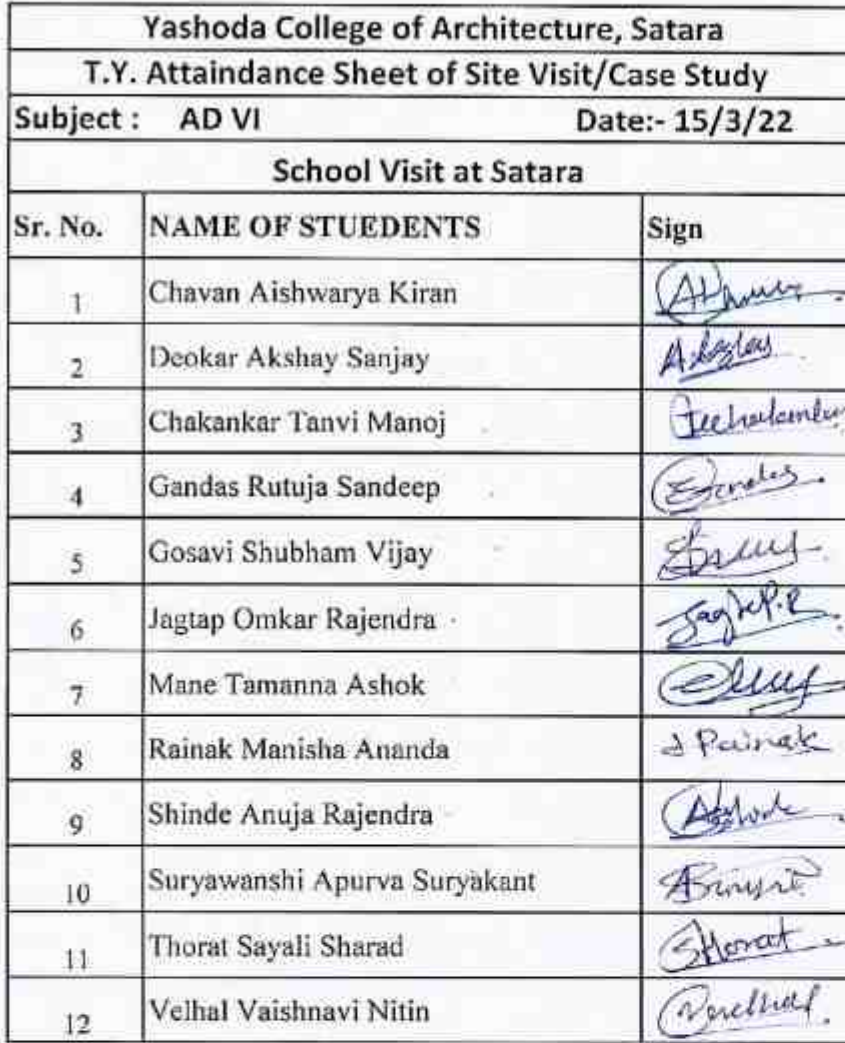 Yashoda College of Architecture, Satara
T.Y. Attaindance Sheet of Site Visit/Case Study
Subject : AD VI Date:- 15/3/22
School Visit at Satara
Sr. No. NAME OF STUEDENTS Sign
1 Chavan Aishwarya Kiran
2 Deokar Akshay Sanjay
3 Chakankar Tanvi Manoj
4 Gandas Rutuja Sandeep
5 Gosavi Shubham Vijay
6 Jagtap Omkar Rajendra
7 Mane Tamanna Ashok
8 Rainak Manisha Ananda
9 Shinde Anuja Rajendra
10 Suryawanshi Apurva Suryakant
11 Thorat Sayali Sharad
12 Velhal Vaishnavi Nitin